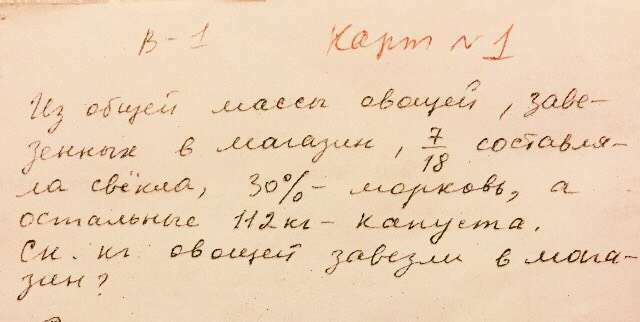 В-1 Карт №1
Из общей массы овощей, заве-
зенных в магазин, 7/18 составля-
ла свёкла, 30% - морковь, а
остальные 112 кг - капуста.
Ск. кг овощей завезли в мага-
зин?